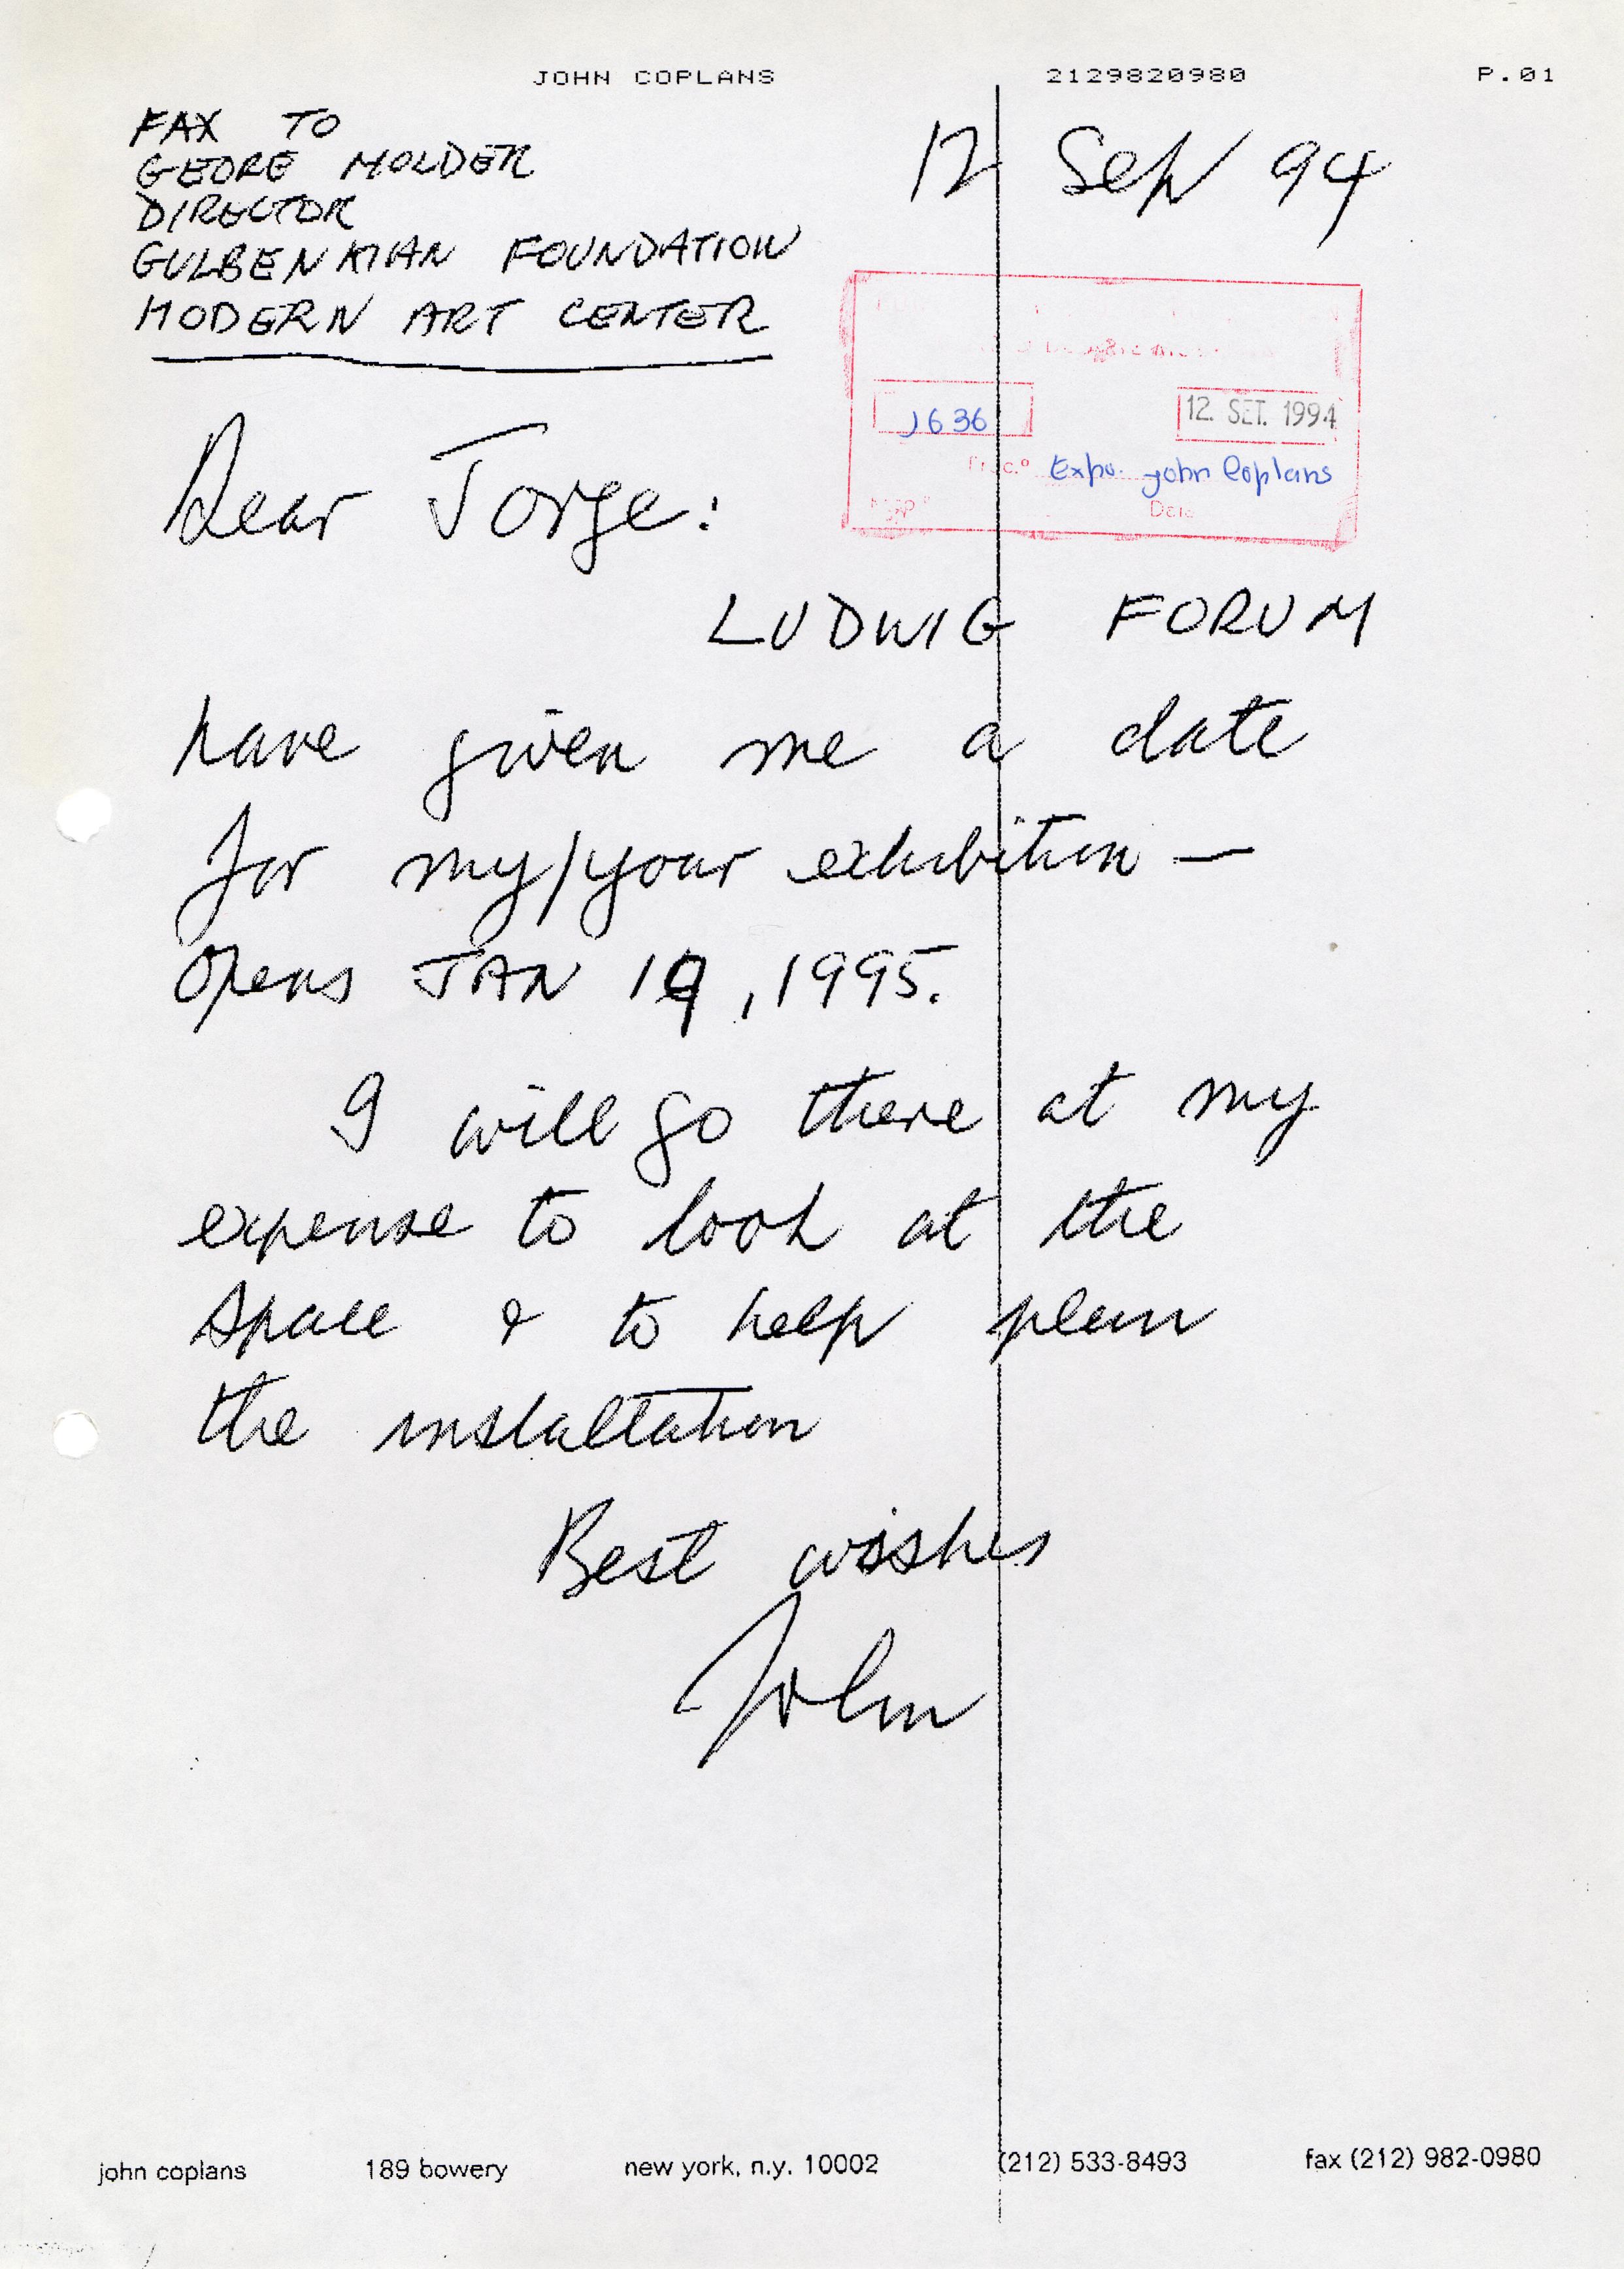 JOHN COPLANS 2129820980 P.01
FAX TO
GEORE MOLDER
DIRECTOR
GULBENKIAN FOUNDATION
MODERN ART CENTER
12 Sep 94
1636
12. SET. 1994
Proc.º Expo. John Coplans
Data
Dear Jorge:
LUDWIG FORUM
have given me a date
for my/your exhibition —
opens JAN 19, 1995.
I will go there at my
expense to look at the
space & to help plan
the installation
Best wishes
John
john coplans 189 bowery new york, n.y. 10002 (212) 533-8493 fax (212) 982-0980